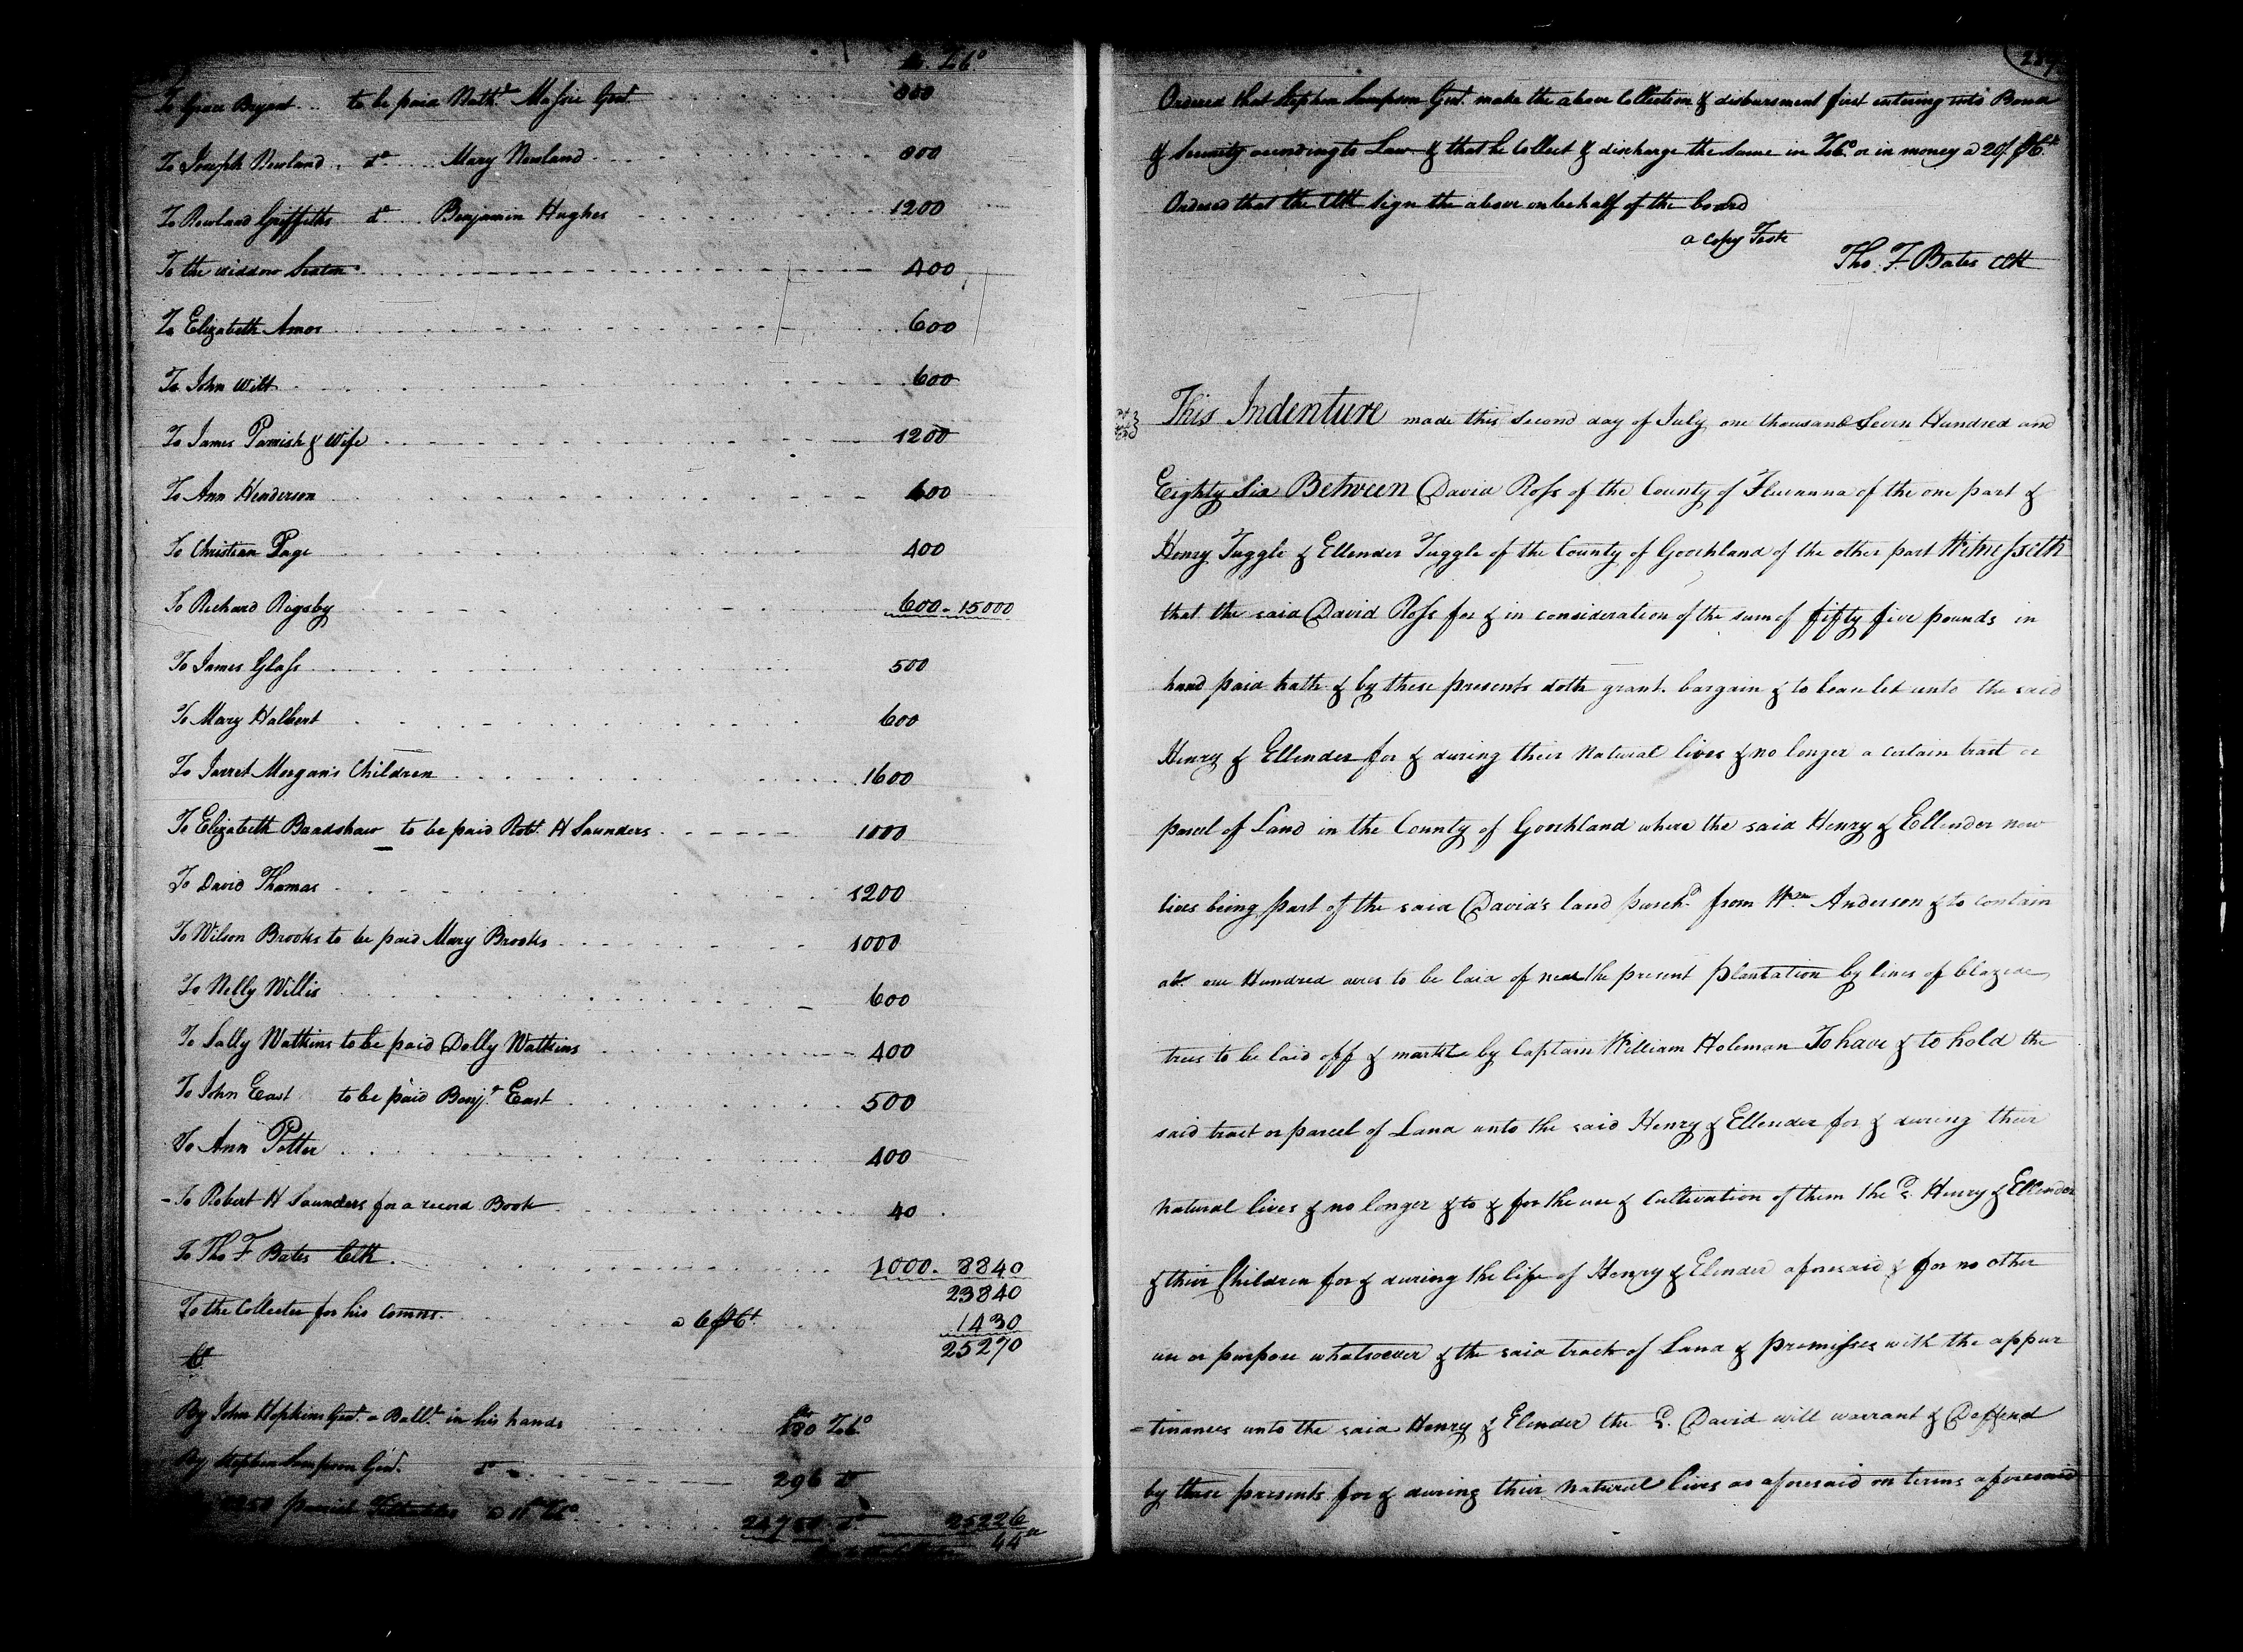 lb. Tob.º
To Grace Bryant .. to be paid Nath.l Massie Gent. 800
To Joseph Newland .. d.º .... Mary Newland 800
To Rowland Griffiths d.º ... Benjamin Hughes 1200
To the widdow Seaton 400
To Elizabeth Amos 600
To John Wilt 600
To James Parrish & Wife 1200
To Ann Henderson 600
To Christian Page 400
To Richard Rigsby 600 . 15000
To James Glass 500
To Mary Halbert 600
To Jarret Morgan's Children 1600
To Elizabeth Bradshaw to be paid Rob.t H Saunders 1000
To David Thomas 1200
To Wilson Brooks to be paid Mary Brooks 1000
To Nelly Willis 600
To Sally Watkins to be paid Dolly Watkins 400
To John East to be paid Benj.a East 500
To Ann Potter 400
- To Robert H Saunders for a record Book 40
To Tho F Bates Clk. 1000 . 8840
23840
To the Collector for his Comns. a 6 ⅌ C.t 1430
25270
Cr
By John Hopkins Gent. a Ball.e in his hands 180 Tob.º
By Stephen Sampson Gent. d.º 296 d.º
parish Tithables a 25226
44
Ordered that Stephen Sampson Gent. make the above Collection & disbursment first entering into Bond
& Security according to Law & that he Collect & discharge the same in Tob.º or in money a 20/ ⅌ C.t
Ordered that the Clk sign the above on behalf of the board
a copy Teste
Tho. F. Bates Clk
This Indenture made this second day of July one thousand Seven Hundred and
Eighty Six Between David Ross of the County of Fluvanna of the one part &
Henry Tuggle & Ellender Tuggle of the County of Goochland of the other part Witnesseth
that the said David Ross for & in consideration of the sum of fifty five pounds in
hand paid hath & by these presents doth grant. bargain & to lease let unto the said
Henry & Ellender for & during their Natural lives & no longer a certain tract or
parcel of Land in the County of Goochland where the said Henry & Ellender now
lives being part of the said David's land purch.d from W.m Anderson & to contain
ab.t one Hundred acres to be laid of near the present plantation by lines of blazed
trees to be laid off & markt by Captain William Holeman To have & to hold the
said tract or parcel of Land unto the said Henry & Ellender for & during their
natural lives & no longer & to & for the use & Cultivation of them the s.d Henry & Ellender
& their Children for & during the life of Henry & Elender aforesaid & for no other
use or purpose whatsoever & the said tract of Land & premisses with the appur
= tinances unto the said Henry & Elender the s.d David will warrant & Deffend
by these presents for & during their Natural lives as aforesaid on terms aforesaid